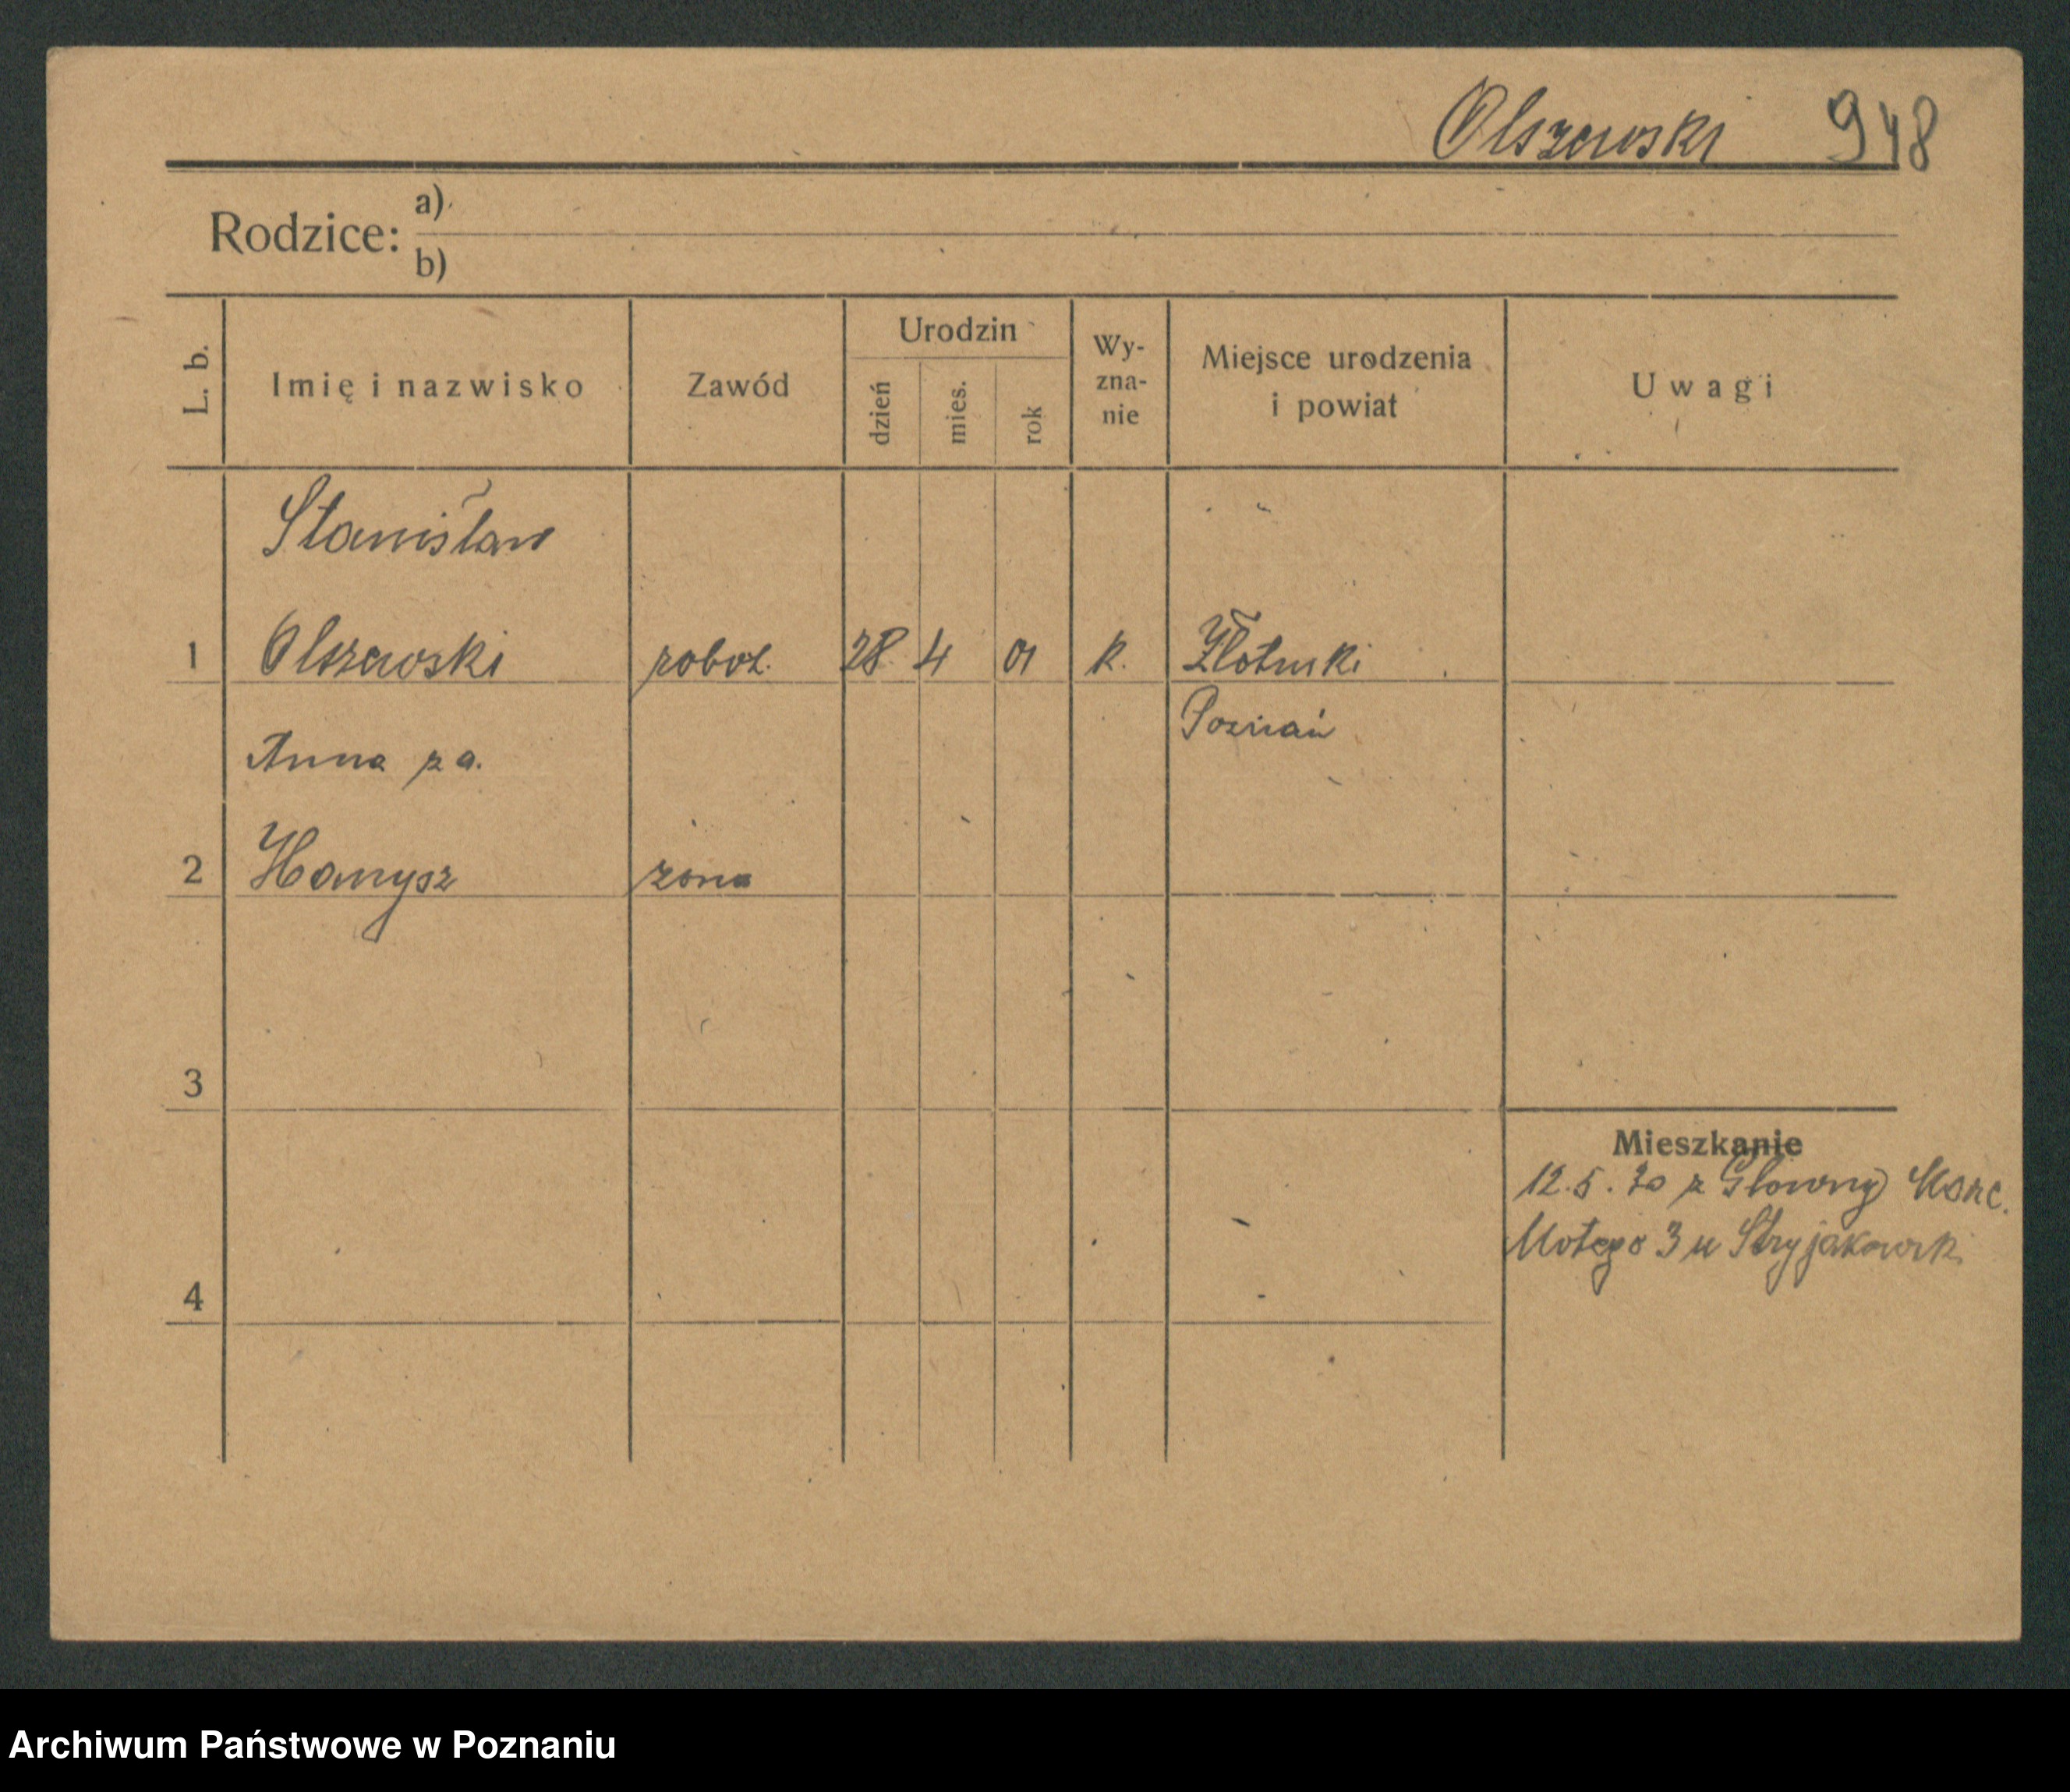 Olszewski 948
Rodzice: a)
b)
L. b.
Imię i nazwisko
Zawód
Urodzin
dzień
mies.
rok
Wy-
zna-
nie
Miejsce urodzenia
i powiat
Uwagi
Stanisław
1 Olszewski robot. 28. 4 01 k. Złotniki
Poznań
Anna z d.
2 Hanysz żona
3
Mieszkanie
12.5.30 z Głowny
Mołego 3 u Stryjakowsk.
4
Archiwum Państwowe w Poznaniu